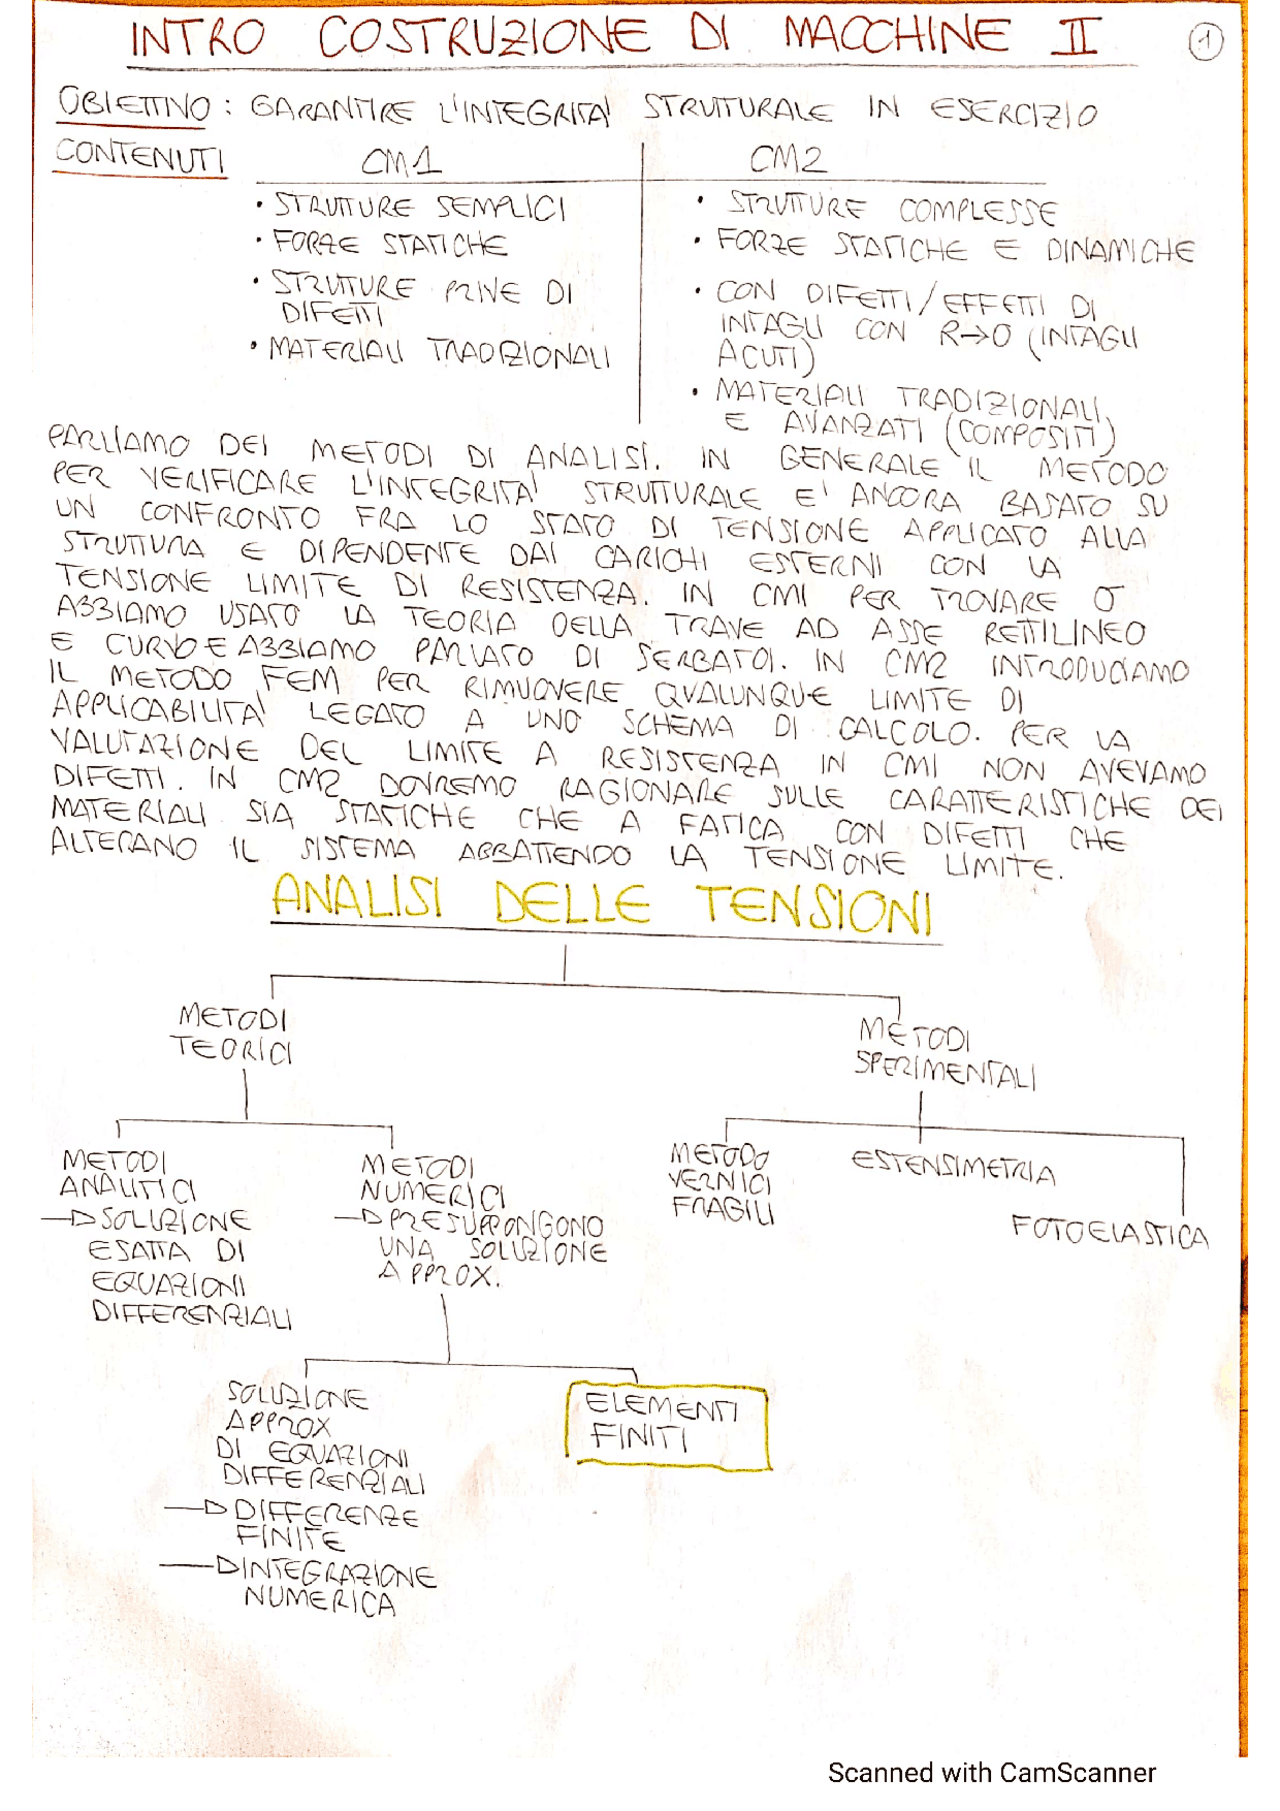 INTRO COSTRUZIONE DI MACCHINE II
1
OBIETTIVO : GARANTIRE L'INTEGRITA' STRUTTURALE IN ESERCIZIO
CONTENUTI
CM1
• STRUTTURE SEMPLICI
• FORZE STATICHE
• STRUTTURE PRIVE DI
DIFETTI
• MATERIALI TRADIZIONALI
CM2
• STRUTTURE COMPLESSE
• FORZE STATICHE E DINAMICHE
• CON DIFETTI/EFFETTI DI
INTAGLI CON R→0 (INTAGLI
ACUTI)
• MATERIALI TRADIZIONALI
E AVANZATI (COMPOSITI)
PARLIAMO DEI METODI DI ANALISI. IN GENERALE IL METODO
PER VERIFICARE L'INTEGRITA' STRUTTURALE E' ANCORA BASATO SU
UN CONFRONTO FRA LO STATO DI TENSIONE APPLICATO ALLA
STRUTTURA E DIPENDENTE DAI CARICHI ESTERNI CON LA
TENSIONE LIMITE DI RESISTENZA. IN CM1 PER TROVARE σ
ABBIAMO USATO LA TEORIA DELLA TRAVE AD ASSE RETTILINEO
E CURVO E ABBIAMO PARLATO DI SERBATOI. IN CM2 INTRODUCIAMO
IL METODO FEM PER RIMUOVERE QUALUNQUE LIMITE DI
APPLICABILITA' LEGATO A UNO SCHEMA DI CALCOLO. PER LA
VALUTAZIONE DEL LIMITE A RESISTENZA IN CM1 NON AVEVAMO
DIFETTI. IN CM2 DOVREMO RAGIONARE SULLE CARATTERISTICHE DEI
MATERIALI SIA STATICHE CHE A FATICA CON DIFETTI CHE
ALTERANO IL SISTEMA ABBATTENDO LA TENSIONE LIMITE.
ANALISI DELLE TENSIONI
METODI
TEORICI
METODI
SPERIMENTALI
METODI
ANALITICI
→ SOLUZIONE
ESATTA DI
EQUAZIONI
DIFFERENZIALI
METODI
NUMERICI
→ PRESUPPONGONO
UNA SOLUZIONE
APPROX.
METODO
VERNICI
FRAGILI
ESTENSIMETRIA
FOTOELASTICA
SOLUZIONE
APPROX
DI EQUAZIONI
DIFFERENZIALI
→ DIFFERENZE
FINITE
→ INTEGRAZIONE
NUMERICA
ELEMENTI
FINITI
Scanned with CamScanner